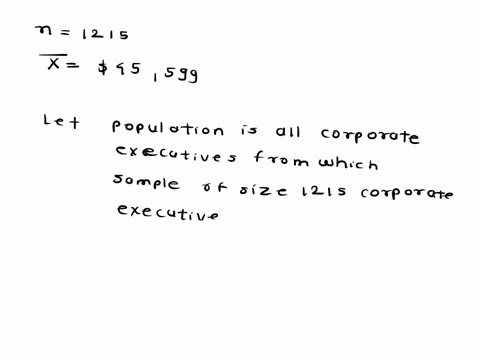 n = 1215
X̅ = $45,599
Let population is all corporate
executives from which
sample of size 1215 corporate
executive